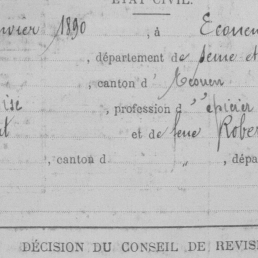 ÉTAT CIVIL.
nvier 1890, à Ecouen
, département de Seine et
, canton d' Ecouen
ise, profession d' 'épicier
et de feue Rober
, canton d " , dépa
DÉCISION DU CONSEIL DE REVIS